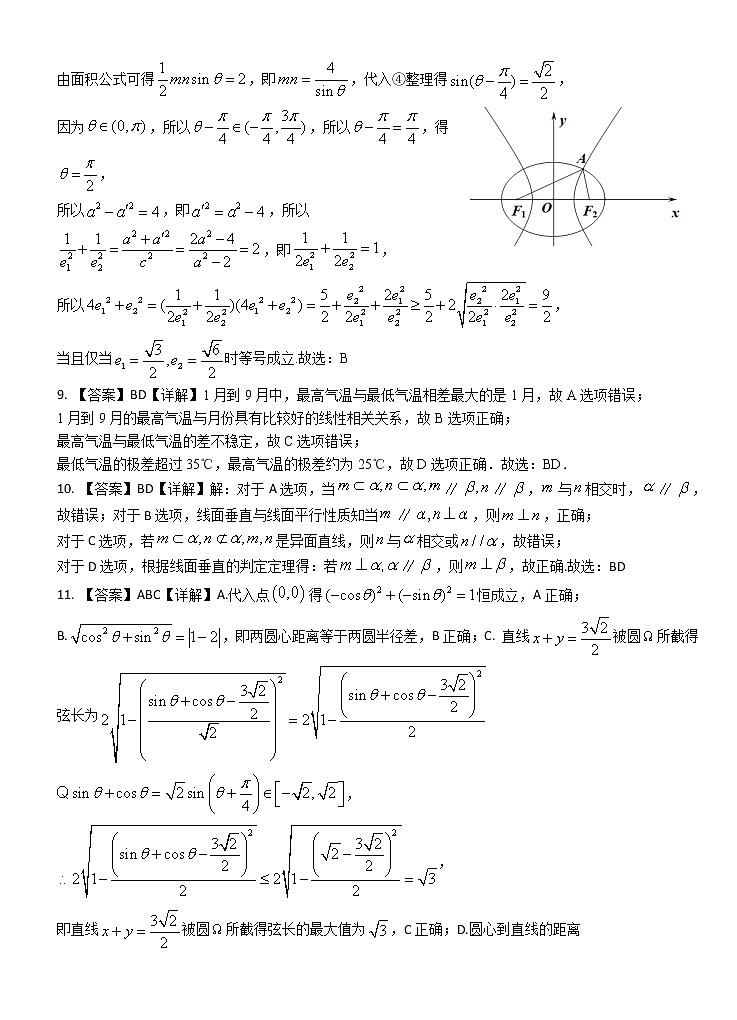 由面积公式可得 1/2 mn sin θ = 2，即 mn = 4/sin θ，代入④整理得 sin(θ − π/4) = √2/2，
因为 θ∈(0,π)，所以 θ − π/4 ∈ (−π/4, 3π/4)，所以 θ − π/4 = π/4，得
θ = π/2，
所以 a² − a′² = 4，即 a′² = a² − 4，所以
1/e₁² + 1/e₂² = (a² + a′²)/c² = (2a² − 4)/(a² − 2) = 2，即 1/(2e₁²) + 1/(2e₂²) = 1，
y
A
F₁ O F₂ x
所以 4e₁² + e₂² = (1/(2e₁²) + 1/(2e₂²))(4e₁² + e₂²) = 5/2 + e₂²/(2e₁²) + 2e₁²/e₂² ≥ 5/2 + 2√(e₂²/(2e₁²)·2e₁²/e₂²) = 9/2，
当且仅当 e₁ = √3/2, e₂ = √6/2 时等号成立.故选：B
9. 【答案】BD【详解】1 月到 9 月中，最高气温与最低气温相差最大的是 1 月，故 A 选项错误；
1 月到 9 月的最高气温与月份具有比较好的线性相关关系，故 B 选项正确；
最高气温与最低气温的差不稳定，故 C 选项错误；
最低气温的极差超过 35℃，最高气温的极差约为 25℃，故 D 选项正确．故选：BD．
10. 【答案】BD【详解】解：对于 A 选项，当 m⊂α,n⊂α,m∥β,n∥β，m 与 n 相交时，α∥β，
故错误；对于 B 选项，线面垂直与线面平行性质知当 m∥α,n⊥α，则 m⊥n，正确；
对于 C 选项，若 m⊂α,n⊄α,m,n 是异面直线，则 n 与 α 相交或 n//α，故错误；
对于 D 选项，根据线面垂直的判定定理得：若 m⊥α,α∥β，则 m⊥β，故正确.故选：BD
11. 【答案】ABC【详解】A.代入点 (0,0) 得 (−cos θ)² + (−sin θ)² = 1 恒成立，A 正确；
B. √(cos²θ + sin²θ) = |1−2|，即两圆心距离等于两圆半径差，B 正确；C. 直线 x + y = 3√2/2 被圆 Ω 所截得
弦长为 2√(1 − ((sin θ + cos θ − 3√2/2)/√2)²) = 2√(1 − (sin θ + cos θ − 3√2/2)²/2)
Q sin θ + cos θ = √2 sin(θ + π/4) ∈ [−√2, √2]，
∴ 2√(1 − (sin θ + cos θ − 3√2/2)²/2) ≤ 2√(1 − (√2 − 3√2/2)²/2) = √3，
即直线 x + y = 3√2/2 被圆 Ω 所截得弦长的最大值为 √3，C 正确；D.圆心到直线的距离